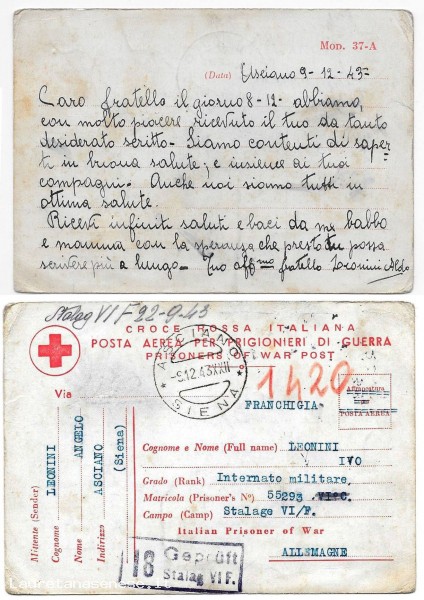 Mod. 37-A
(Data) Asciano 9-12-43-
Caro fratello il giorno 8-12- abbiamo,
con molto piacere ricevuto il tuo da tanto
desiderato scritto- Siamo contenti di saper
ti in buona salute; e insieme ai tuoi
compagni- Anche noi siamo tutti in
ottima salute.
Ricevi infiniti saluti e baci da me babbo
e mamma con la speranza che presto tu possa
scrivere più a lungo- Tuo affmo fratello Leonini Aldo
Stalag VI F 22-9-43
CROCE ROSSA ITALIANA
POSTA AEREA PER PRIGIONIERI DI GUERRA
PRISONERS OF WAR POST
ASCIANO
-9.12.43XXII
SIENA
1420
Via
FRANCHIGIA
POSTA AEREA
Mittente (Sender)
Cognome LEONINI
Nome ANGELO
Indirizzo ASCIANO
(Siena)
Cognome e Nome (Full name) LEONINI
IVO
Grado (Rank) Internato militare
Matricola (Prisoner's No) 55293
Campo (Camp) Stalage VI/F.
Italian Prisoner of War
ALLEMAGNE
18 Geprüft
Stalag VI F.